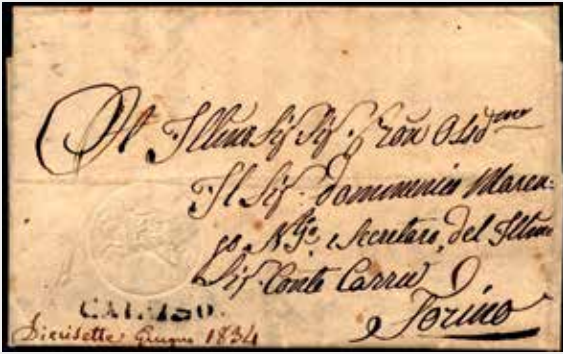 All' Illmo Sig Sig. Pron Ossd.mo
Il Sig. domenico Maren:
go N.jo e Secretaro, del Illmo
Sig. Conte Carru
Torino
Diecisette Giugno 1834